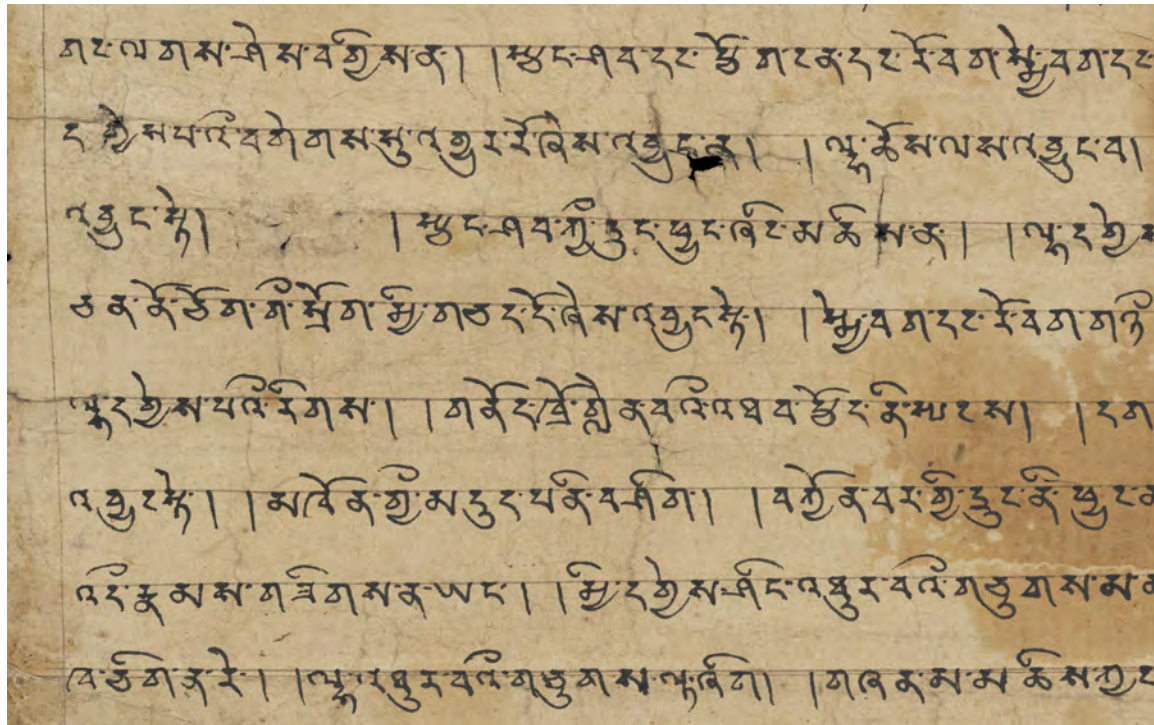 གང་ལགས་ཤེས་བགྱིས་ན། ། ཤབ་དང་ གང་ན་དང་རོ་བག་སྐྱི་བག་དང་
ད་གྱེས་པའི་བགེགས་སུ་འགྱུར་རོ་ཞེས་འབྱུང་ན། །ལྷ་ཆོས་ལས་འབྱུང་བ།
འབྱུང་སྟེ། ། ཤབ་ཀྱི་དུང་ཕྱུང་ཞིང་མཆིས་ན། །ལྷ་དགྱེས
ཅན་ནོ་ཅོག་གི་སྲོག་མྱི་གཅད་དོ་ཞེས་འབྱུང་སྟེ། །སྐྱི་བག་དང་རོ་བག་གཉི
ལྷ་དགྱེས་པའི་རིགས། །གནོད་ འཐབ་སྤྱོད་ནི་སྤངས། །དག
འབྱུང་སྟེ། །མཁོན་གྱི་མདུད་པ་ནི་བཤིག །བཀྱོན་བར་གྱི་དུང་ནི་ཕྱུང་
འདི་རྣམས་གཟིགས་ན་ཡང་། །མྱི་དགྱེས་ཤིང་འཕུར་བའི་གཙུགས་མ
ཁ་ཅིག་ན་རེ། །ལྷ་འཕུར་བའི་གཙུགས་ལྟ་ཞིག །གཞན་མ་མཆིས་ཀྱང